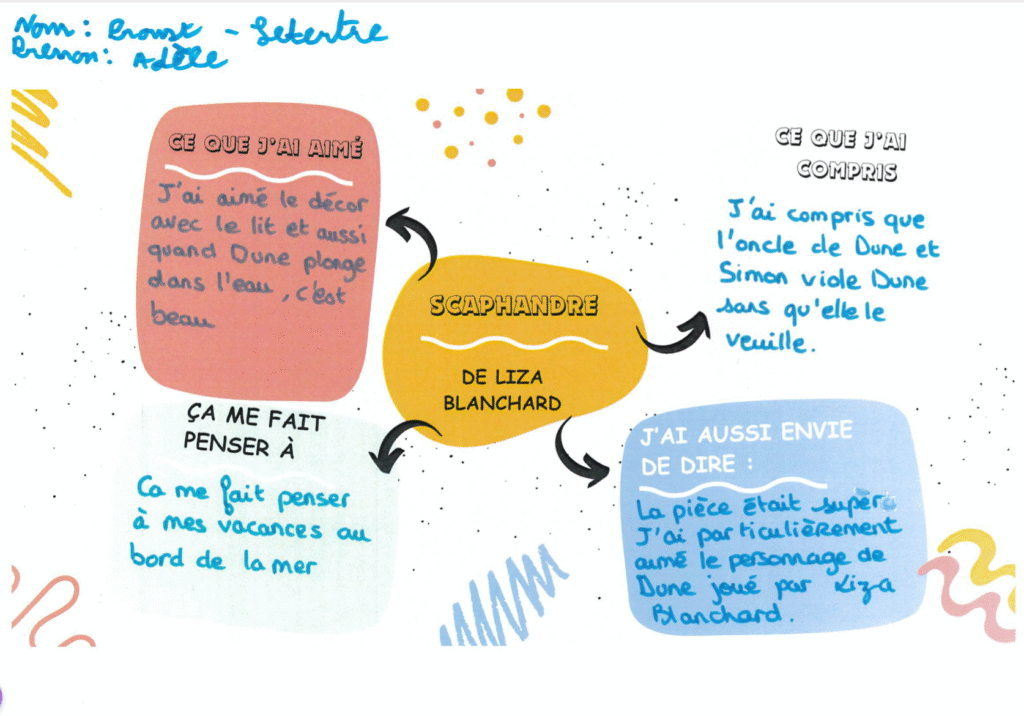 Nom : Proust - Letertre
Prénom : Adèle
CE QUE J'AI AIMÉ
J'ai aimé le décor
avec le lit et aussi
quand Dune plonge
dans l'eau, c'est
beau
CE QUE J'AI
COMPRIS
J'ai compris que
l'oncle de Dune et
Simon viole Dune
sans qu'elle le
veuille.
SCAPHANDRE
DE LIZA
BLANCHARD
ÇA ME FAIT
PENSER À
Ca me fait penser
à mes vacances au
bord de la mer
J'AI AUSSI ENVIE
DE DIRE :
La pièce était supèr.
J'ai particulièrement
aimé le personnage de
Dune joué par Liza
Blanchard.